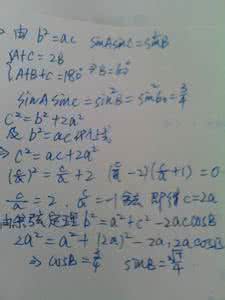 由 b²=ac sinAsinC=sin²B
{A+C=2B
A+B+C=180° ⇒B=60°
sinAsinC=sin²B=sin²60=3/4
c²=b²+2a²
及 b²=ac
⇒ c²=ac+2a²
(c/a)²=c/a+2 (c/a-2)(c/a+1)=0
c/a=2. c/a=-1 舍去 即得 c=2a
由余弦定理 b²=a²+c²-2accosB
2a²=a²+(2a)²-2a·2acosB
⇒ cosB=3/4 sinB=√7/4